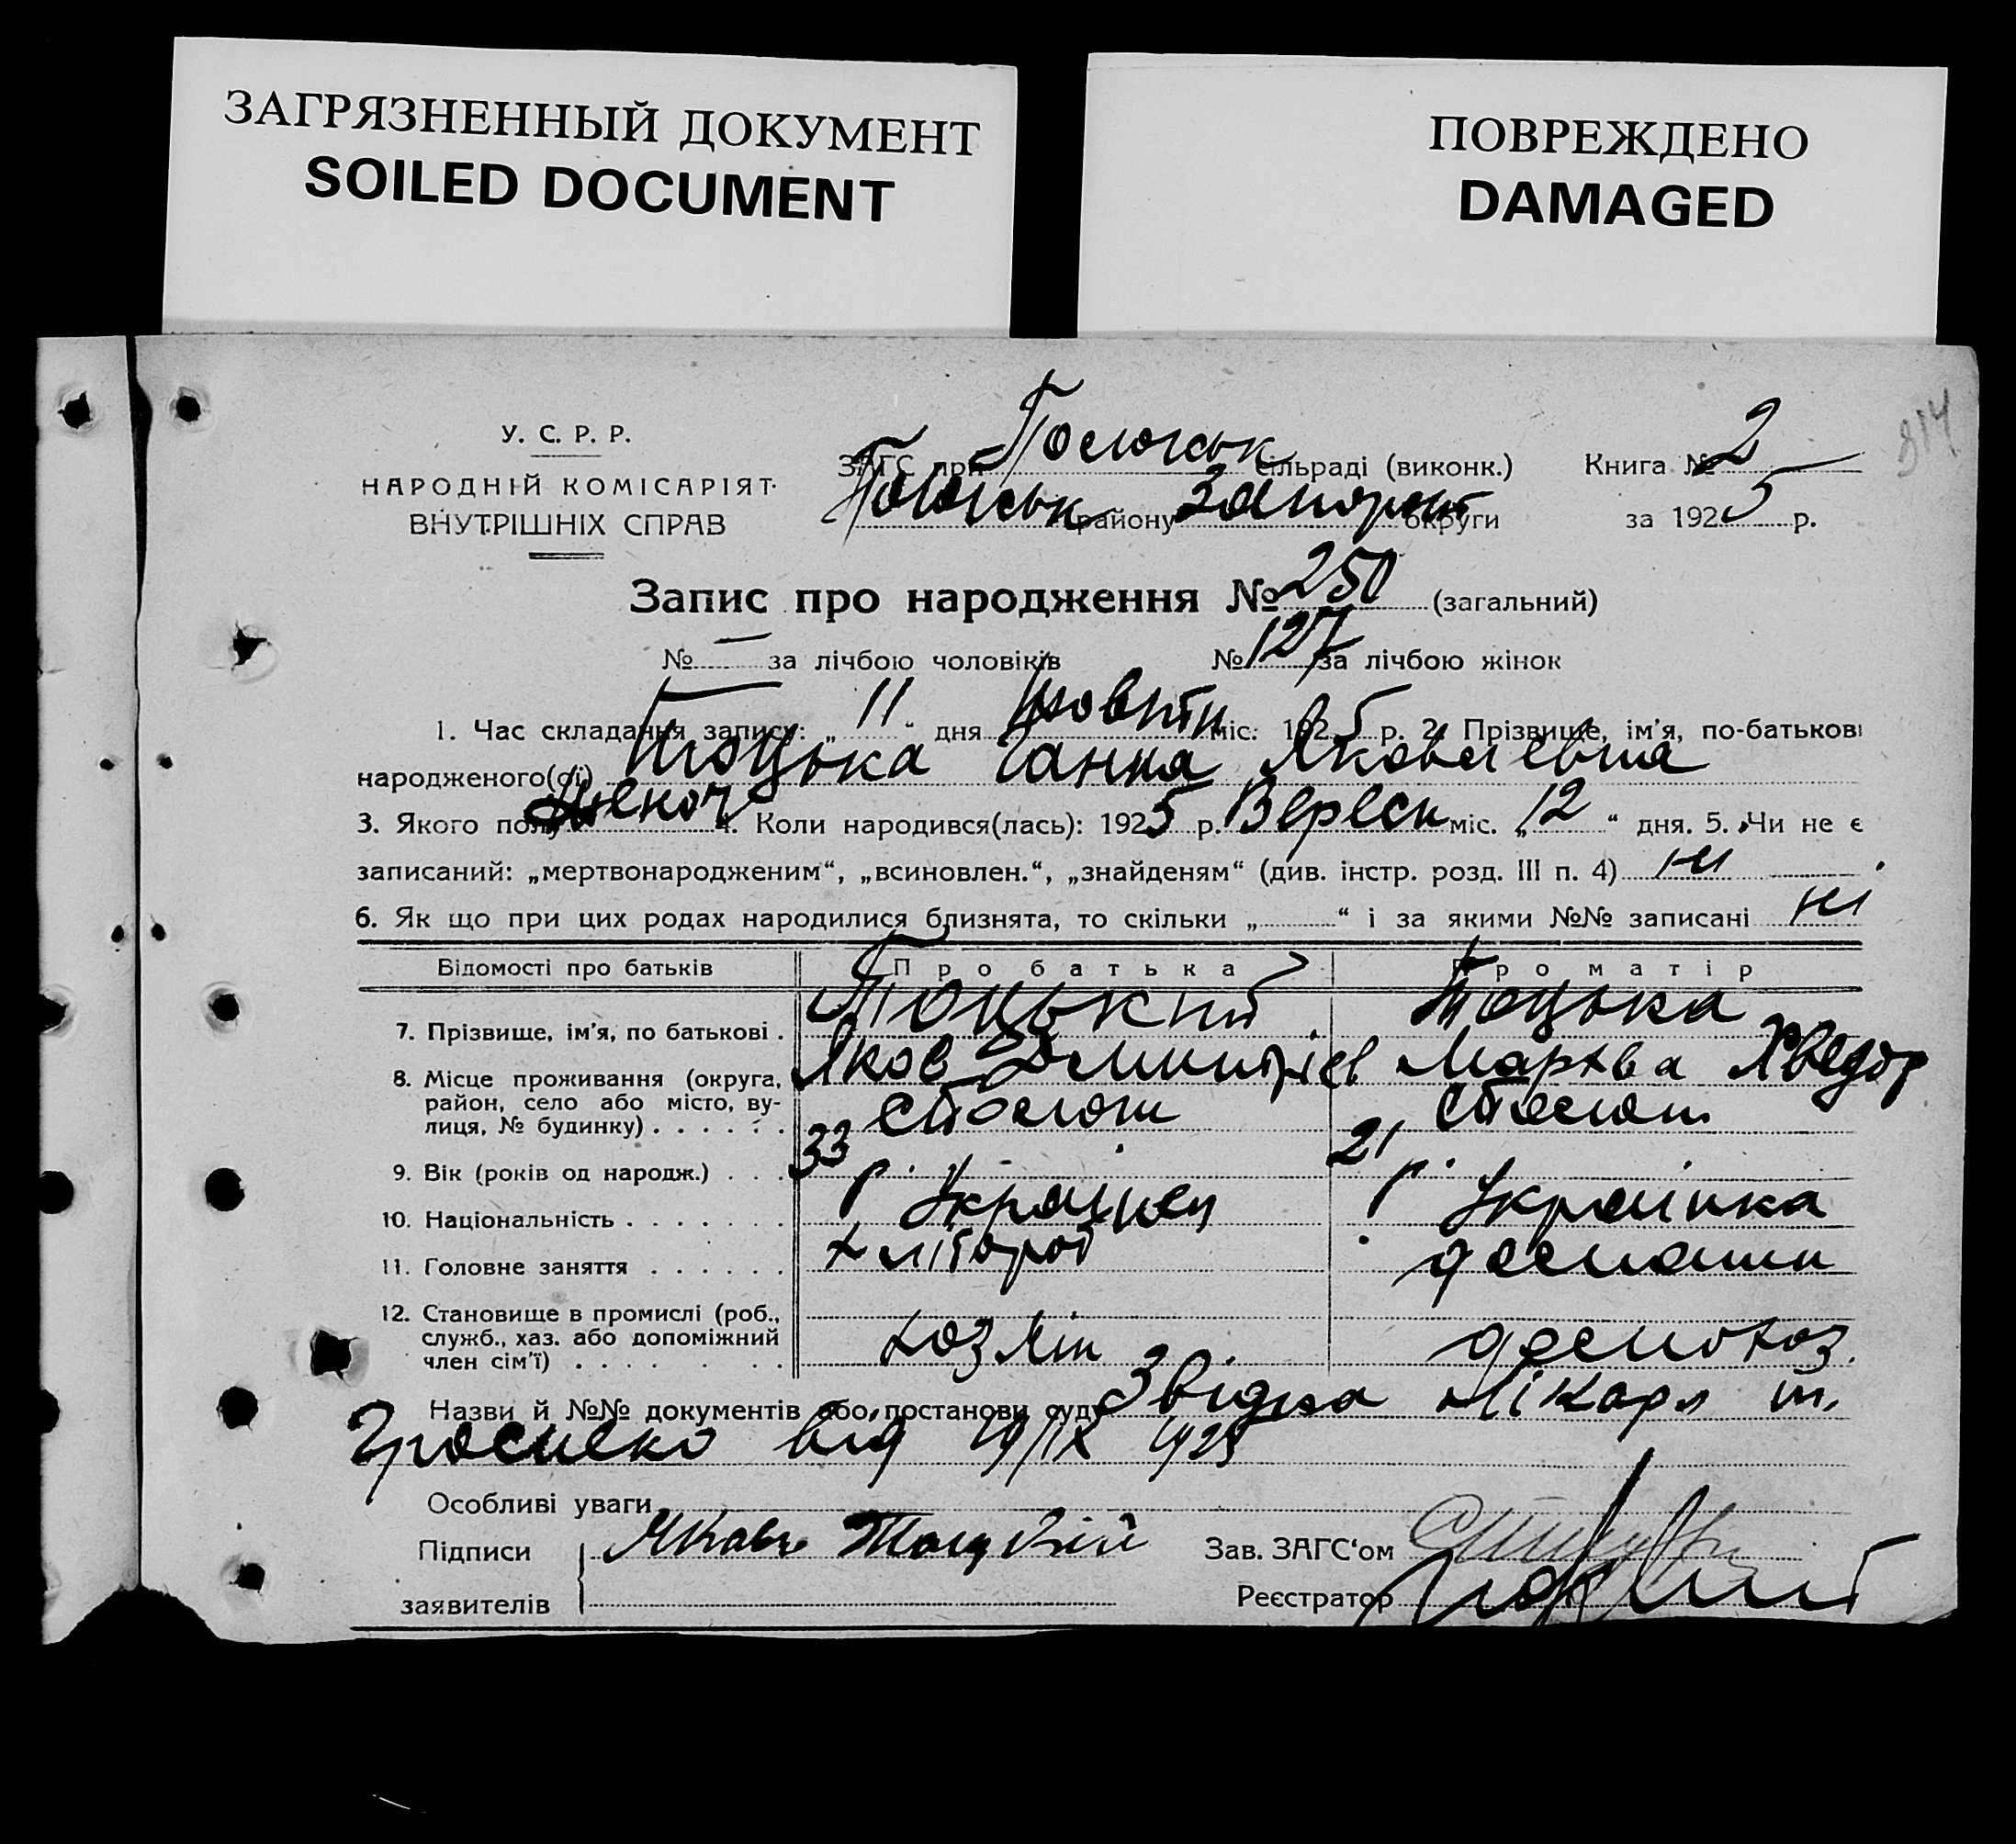 ЗАГРЯЗНЕННЫЙ ДОКУМЕНТ
SOILED DOCUMENT
ПОВРЕЖДЕНО
DAMAGED
314
У. С. Р. Р.
НАРОДНІЙ КОМІСАРІЯТ
ВНУТРІШНІХ СПРАВ
ЗАГС при Пологськ сільраді (виконк.) Книга № 2
Пологськ району Запоріт округи за 1925 р.
Запис про народження № 250 (загальний)
№ — за лічбою чоловіків № 127 за лічбою жінок
1. Час складання запису: „11“ дня Жовтн міс. 1925 р. 2. Прізвище, ім'я, по-батькові
народженого(ої) Тоцька Ганна Яковлевна
3. Якого полу Жіноч 4. Коли народився(лась): 1925 р. Вересн міс. „12“ дня. 5. Чи не є
записаний: „мертвонародженим“, „всиновлен.“, „знайденям“ (див. інстр. розд. III п. 4) ні
6. Як що при цих родах народилися близнята, то скільки „ “ і за якими №№ записані ні
Відомості про батьків Про батька Про матір
7. Прізвище, ім'я, по батькові . Тоцький Тоцька
Яков Дмитрієв Мархва Хведор
8. Місце проживання (округа, район, село або місто, вулиця, № будинку) . . . . . . с Пологи с Пологи
9. Вік (років од народж.) . . . 33 р. 21 р.
10. Національність . . . . . . . Українец Українка
11. Головне заняття . . . . . . хлібороб домашн
12. Становище в промислі (роб., служб., хаз. або допоміжний член сім'ї) . . . . . . . хазяін домохоз.
Назви й №№ документів або постанови суду Звідка Лікаря т.
від 19/IX 1925
Особливі уваги
Підписи Яков Тоцкий Зав. ЗАГС'ом
заявителів Реєстратор